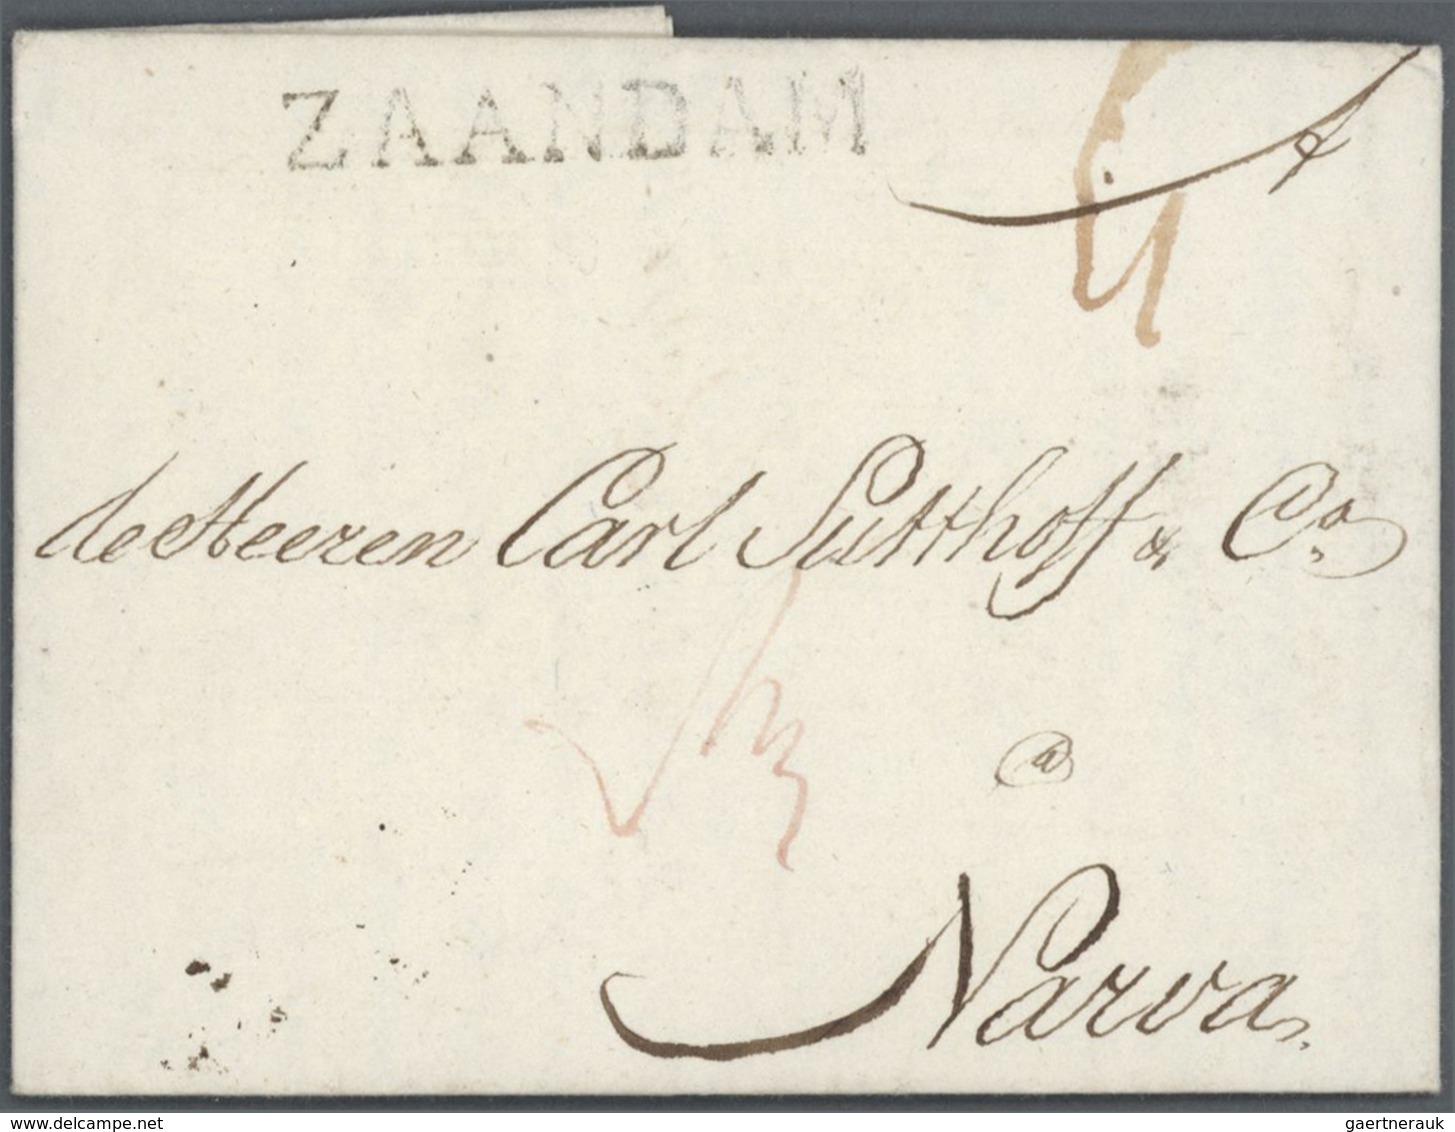 ZAANDAM
de Heeren Carl Sutthoff & Co.
a
Narva
www.delcampe.net
gaertnerauk